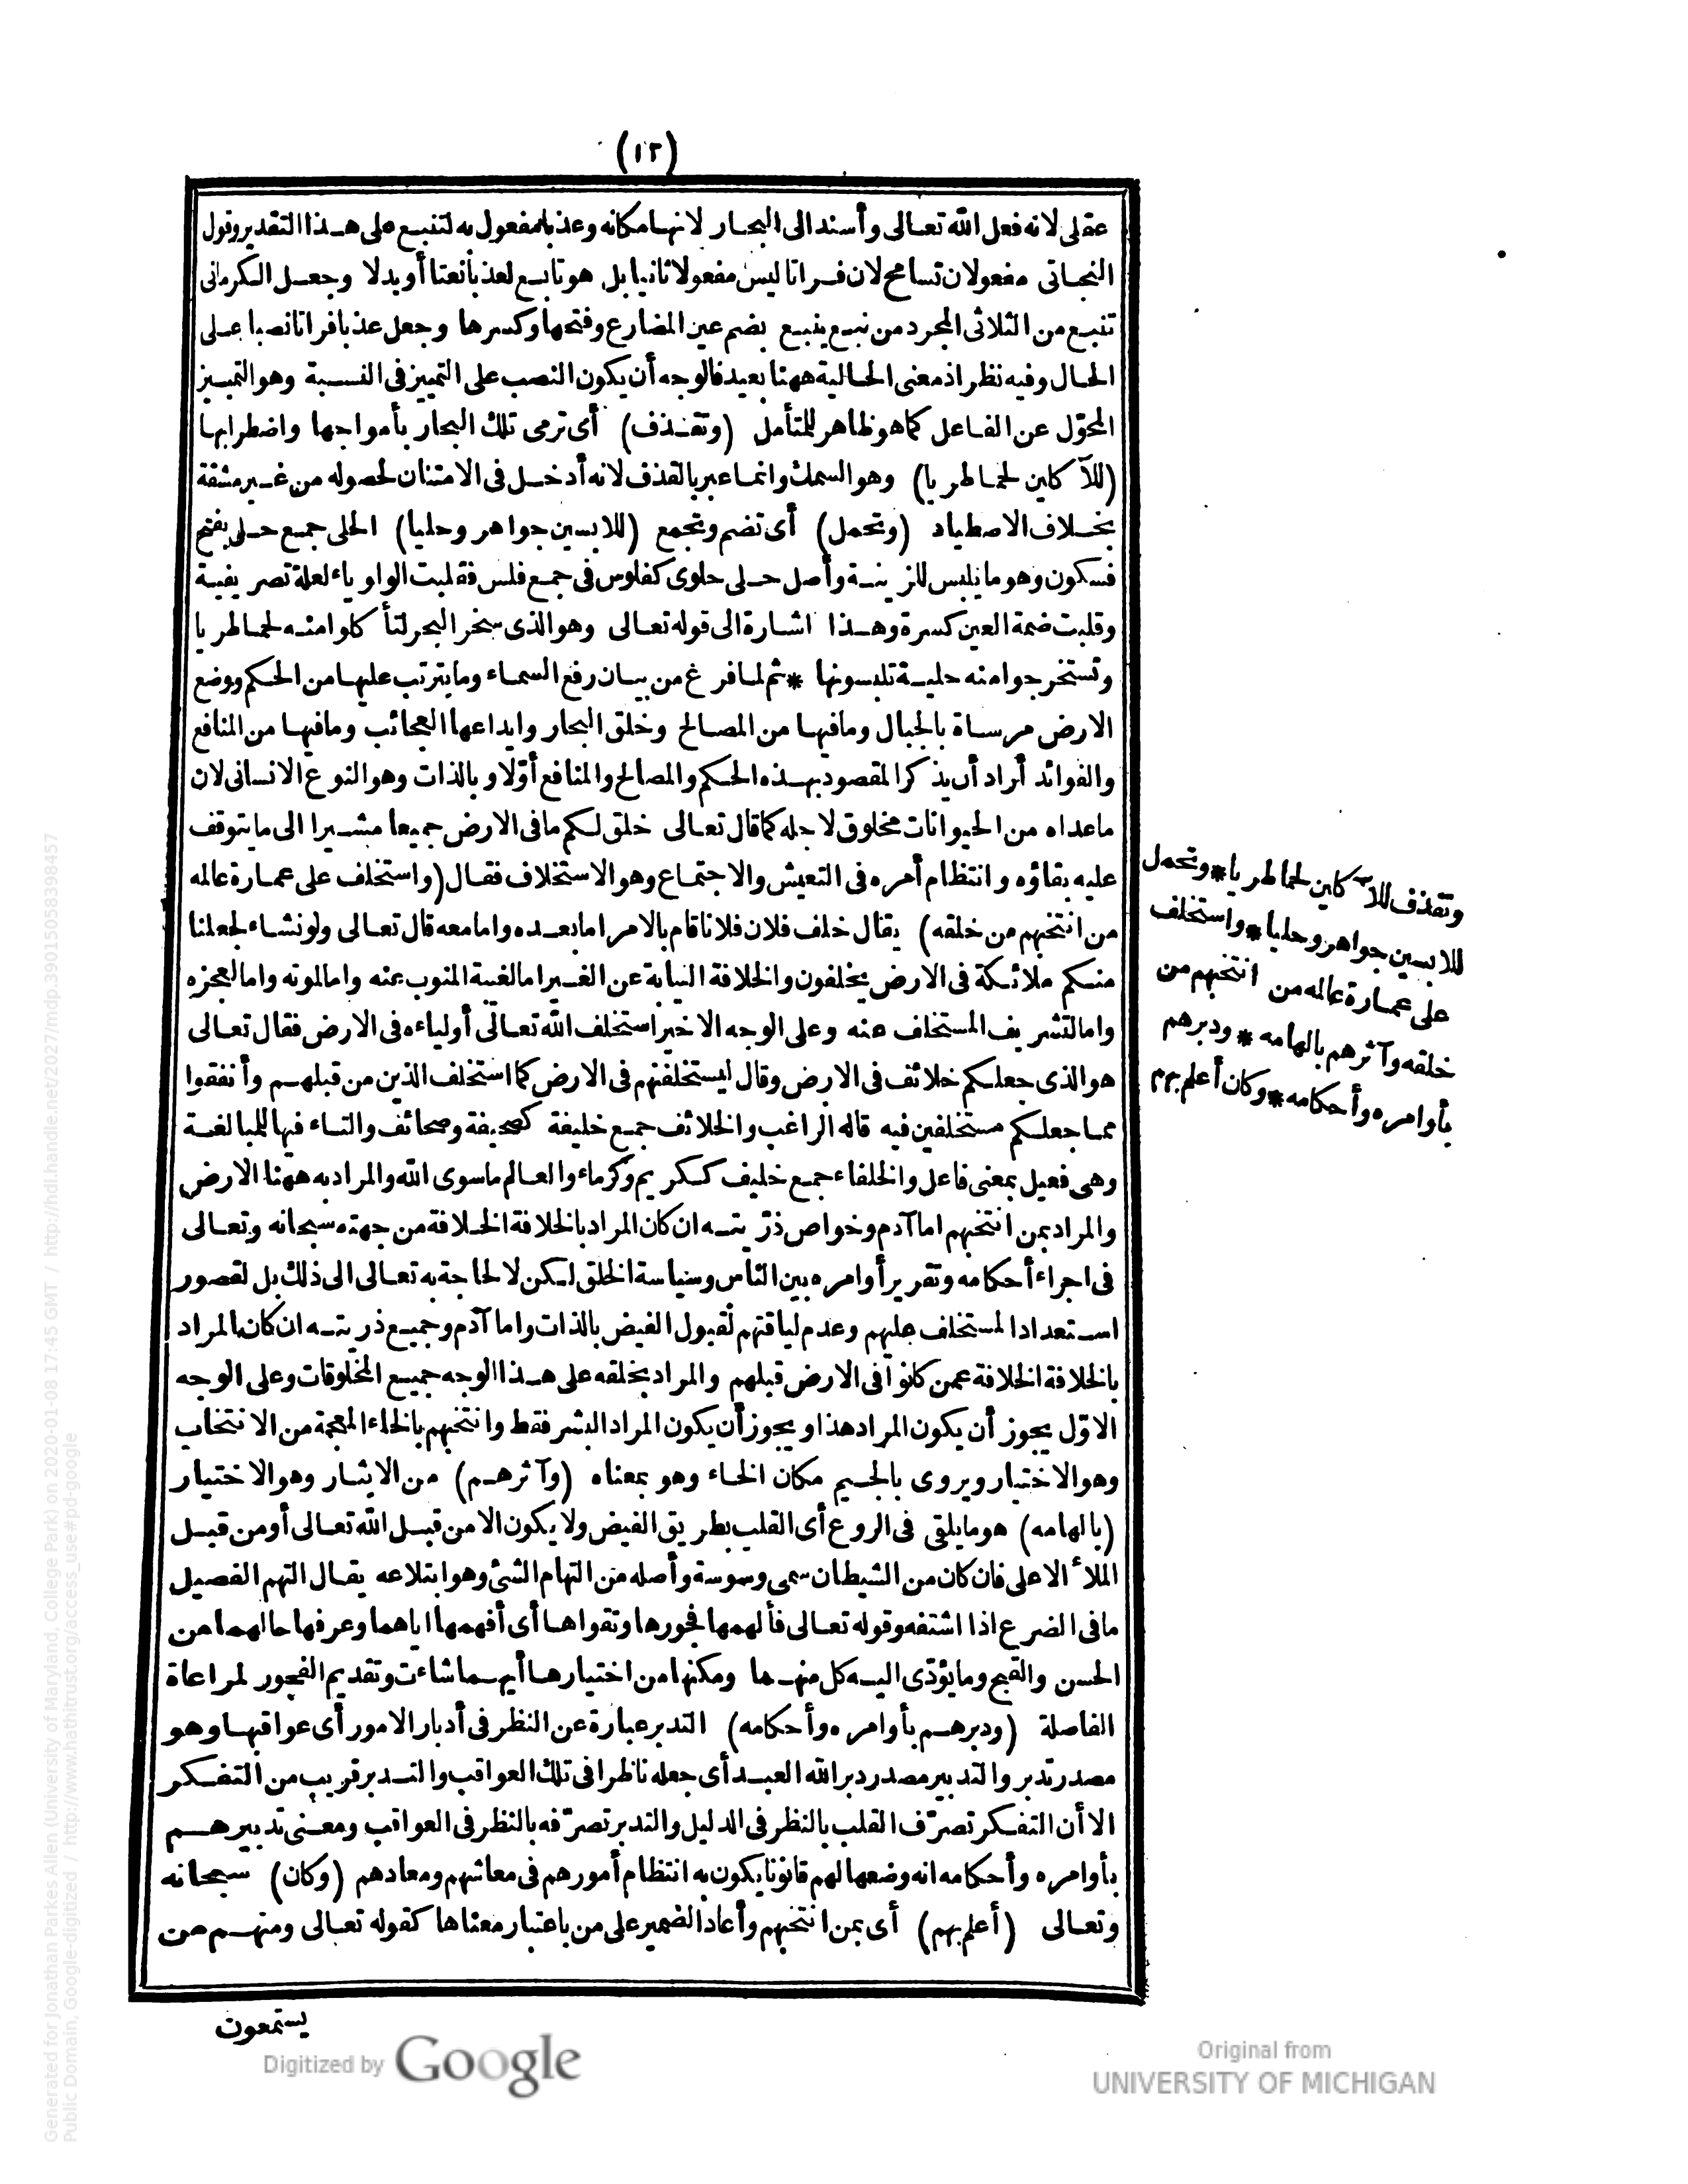 (١٢)
عقلى لانه فعل الله تعالى وأسند الى البحار لانها مكانه وعذبا مفعول به لتنبع على هذا التقدير وقول
النجاتى مفعولان تسامح لان فراتا ليس مفعولا ثانيا بل هو تابع لعذبا نعتا أو بدلا وجعل الكرمانى
تنبع من الثلاثى المجرد من نبع ينبع بضم عين المضارع وفتحها وكسرها وجعل عذبا فراتا نصبا على
الحال وفيه نظر اذ معنى الحالية ههنا بعيد فالوجه أن يكون النصب على التمييز فى النسبة وهو التمييز
المحوّل عن الفاعل كما هو ظاهر للمتأمل (وتقذف) أى ترمى تلك البحار بأمواجها واضطرابها
(للآ كاين لحما طريا) وهو السمك وانما عبر بالقذف لانه أدخل فى الامتنان لحصوله من غير مشقة
بخلاف الاصطياد (وتحمل) أى تضم وتجمع (للابسين جواهر وحليا) الحلى جمع حلى بفتح
فسكون وهو ما يلبس للزينة وأصل حلى حلوى كفلوس فى جمع فلس فقلبت الواو ياء لعلة تصريفية
وقلبت ضمة العين كسرة وهذا اشارة الى قوله تعالى وهو الذى سخر البحر لتأكلوا منه لحما طريا
وتستخرجوا منه حلية تلبسونها * ثم لما فرغ من بيان رفع السماء وما يترتب عليها من الحكم ووضع
الارض مرساة بالجبال وما فيها من المصالح وخلق البحار وايداعها العجائب وما فيها من المنافع
والفوائد أراد أن يذكر المقصود بهذه الحكم والمصالح والمنافع أوّلا وبالذات وهو النوع الانسانى لان
ماعداه من الحيوانات مخلوق لاجله كما قال تعالى خلق لكم ما فى الارض جميعا مشيرا الى ما يتوقف
عليه بقاؤه وانتظام أمره فى التعيش والاجتماع وهو الاستخلاف فقال (واستخلف على عمارة عالمه
من انتخبهم من خلقه) يقال خلف فلان فلانا قام بالامر اما بعده واما معه قال تعالى ولو نشاء لجعلنا
منكم ملائكة فى الارض يخلفون والخلافة النيابة عن الغير اما لغيبة المنوب عنه واما لموته واما لعجزه
واما لتشريف المستخلف عنه وعلى الوجه الاخير استخلف الله تعالى أولياءه فى الارض فقال تعالى
هو الذى جعلكم خلائف فى الارض وقال ليستخلفنهم فى الارض كما استخلف الذين من قبلهم وأنفقوا
مما جعلكم مستخلفين فيه قاله الراغب والخلائف جمع خليفة كصحيفة وصحائف والتاء فيها للمبالغة
وهى فعيل بمعنى فاعل والخلفاء جمع خليف ككريم وكرماء والعالم ماسوى الله والمراد به ههنا الارض
والمراد بمن انتخبهم اما آدم وخواص ذرّيته ان كان المراد بالخلافة الخلافة من جهته سبحانه وتعالى
فى اجراء أحكامه وتقرير أوامره بين الناس وسياسة الخلق لكن لا لحاجة به تعالى الى ذلك بل لقصور
استعداد المستخلف عليهم وعدم لياقتهم لقبول الفيض بالذات واما آدم وجميع ذريته ان كان المراد
بالخلافة الخلافة عمن كانوا فى الارض قبلهم والمراد بخلقه على هذا الوجه جميع المخلوقات وعلى الوجه
الاوّل يجوز أن يكون المراد هذا ويجوز أن يكون المراد البشر فقط وانتخبهم بالخاء المعجمة من الانتخاب
وهو الاختيار ويروى بالجيم مكان الخاء وهو بمعناه (وآثرهم) من الايثار وهو الاختيار
(بالهامه) هو ما يلقى فى الروع أى القلب بطريق الفيض ولا يكون الا من قبل الله تعالى أو من قبل
الملأ الاعلى فان كان من الشيطان سمى وسوسة وأصله من التهام الشئ وهو ابتلاعه يقال التهم الفصيل
ما فى الضرع اذا اشتفه وقوله تعالى فألهمها فجورها وتقواها أى أفهمها اياهما وعرفها حالهما من
الحسن والقبح وما يؤدّى اليه كل منهما ومكنها من اختيارها أيهما شاءت وتقديم الفجور لمراعاة
الفاصلة (ودبرهم بأوامره وأحكامه) التدبر عبارة عن النظر فى أدبار الامور أى عواقبها وهو
مصدر تدبر والتدبير مصدر دبر الله العبد أى جعله ناظرا فى تلك العواقب والتدبر قريب من التفكر
الا أن التفكر تصرّف القلب بالنظر فى الدليل والتدبر تصرّفه بالنظر فى العواقب ومعنى تدبيرهم
بأوامره وأحكامه انه وضعها لهم قانونا يكون به انتظام أمورهم فى معاشهم ومعادهم (وكان) سبحانه
وتعالى (أعلم بهم) أى بمن انتخبهم وأعاد الضمير على من باعتبار معناها كقوله تعالى ومنهم من
يستمعون
وتقذف للآ كاين لحما طريا * وتحمل
للابسين جواهر وحليا * واستخلف
على عمارة عالمه من انتخبهم من
خلقه وآثرهم بالهامه * ودبرهم
بأوامره وأحكامه * وكان أعلم بهم
Digitized by Google
Original from
UNIVERSITY OF MICHIGAN
Generated for Jonathan Parkes Allen (University of Maryland, College Park) on 2020-01-08 17:45 GMT / http://hdl.handle.net/2027/mdp.39015058398457
Public Domain, Google-digitized / http://www.hathitrust.org/access_use#pd-google